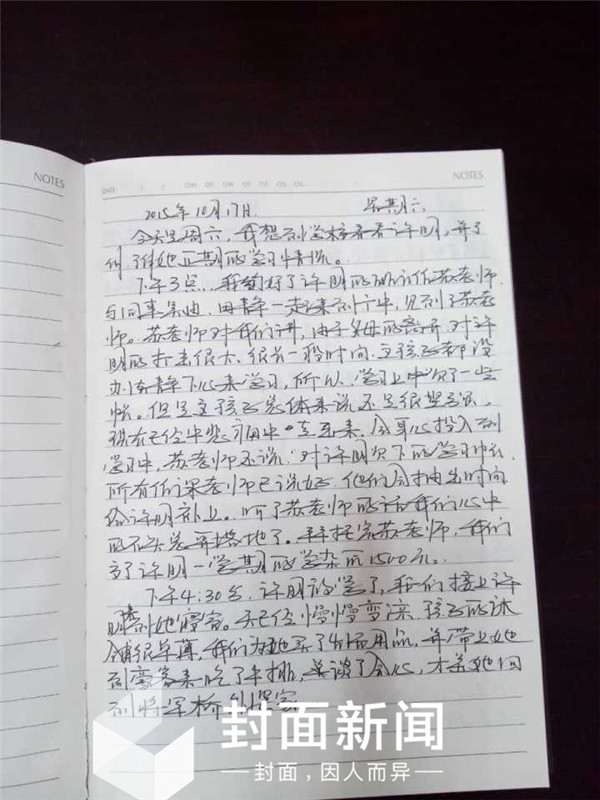 NOTES
NOTES
2015年10月17日. 星期六
今天是周六,我想到学校看看许明,并了
解一下她近期的学习情况。
下午3点,我约好了许明的班主任苏老师
与同事 一起来到 中,见到了苏老
师。苏老师对我们讲,由于父母的离开,对许
明的打击很大,很长一段时间,这孩子都没
办法静下心来学习,所以,学习上中欠了一些
帐。但是这孩子总体来说还是很坚强,
现在已经从悲痛中走出来,全身心投入到
学习中,苏老师还说:对许明欠下的学习帐,
所有任课老师已说好,他们会抽出时间
给许明补上。听了苏老师的话我们心中
的石头总算落地了。拜托完苏老师,我们
交了许明一学期的学杂费1500元。
下午4:30分,许明放学了,我们接上许
明到她寝室。天已经慢慢变凉,孩子的床
铺很单薄,我们为她买了 用品,并带上她
到豪客来吃了牛排,并谈了会心,才送她回
到将军桥的 家
封面新闻
封面,因人而异